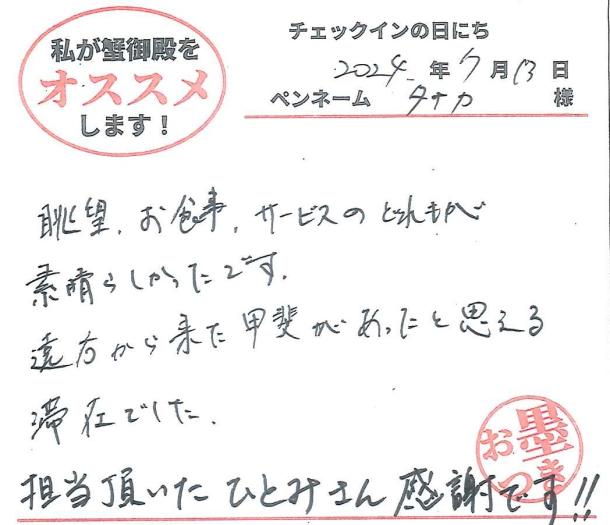 私が蟹御殿を
オススメ
します！
チェックインの日にち
2024年7月13日
ペンネーム タナカ 様
眺望、お食事、サービスのどれもが
素晴らしかったです。
遠方から来た甲斐があったと思える
滞在でした。
お墨つき
担当頂いたひとみさん感謝です!!